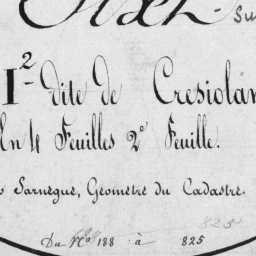 Su
I² dite de Cresiolán
En 4 Feuilles 2e Feuille.
Sarnègue, Géomètre du Cadastre.
825
Du No 188 à 825